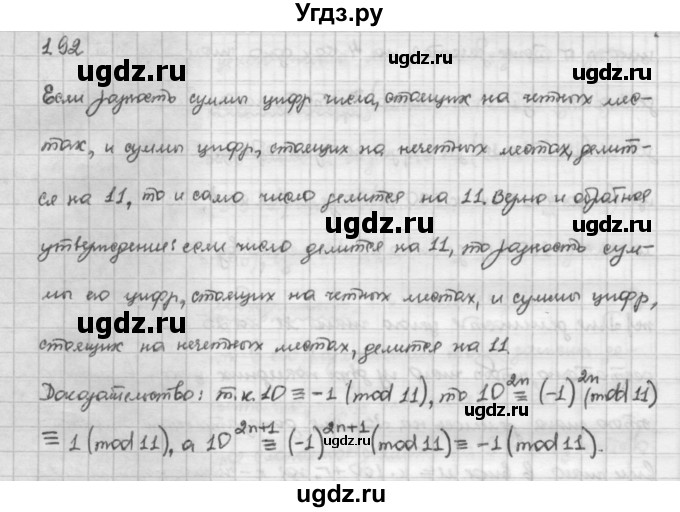 Угдз.ру
192
Если разность суммы цифр числа, стоящих на четных мес-
тах, и суммы цифр, стоящих на нечетных местах, делит-
ся на 11, то и само число делится на 11. Верно и обратное
утверждение: если число делится на 11, то разность сум-
мы его цифр, стоящих на четных местах, и суммы цифр,
стоящих на нечетных местах, делится на 11.
Доказательство: т.к. 10 ≡ -1 (mod 11), то 10²ⁿ ≡ (-1)²ⁿ (mod 11)
≡ 1 (mod 11), а 10²ⁿ⁺¹ ≡ (-1)²ⁿ⁺¹ (mod 11) ≡ -1 (mod 11).
ugdz.ru
ugdz.ru
ugdz.ru
ugdz.ru
ugdz.ru
ugdz.ru
ugdz.ru
ugdz.ru